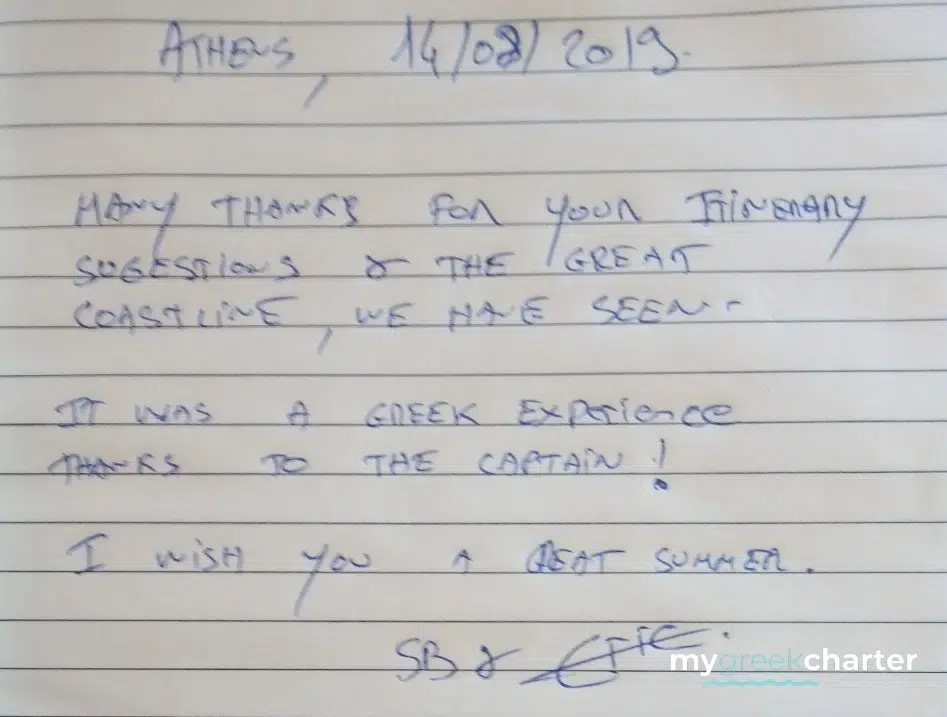 ATHENS, 14/08/2019.
MANY THANKS FOR YOUR ITINERARY
SUGESTIONS & THE GREAT
COASTLINE, WE HAVE SEEN-
IT WAS A GREEK EXPERIENCE
THANKS TO THE CAPTAIN!
I WISH YOU A GEAT SUMMER.
SB &
mygreekcharter